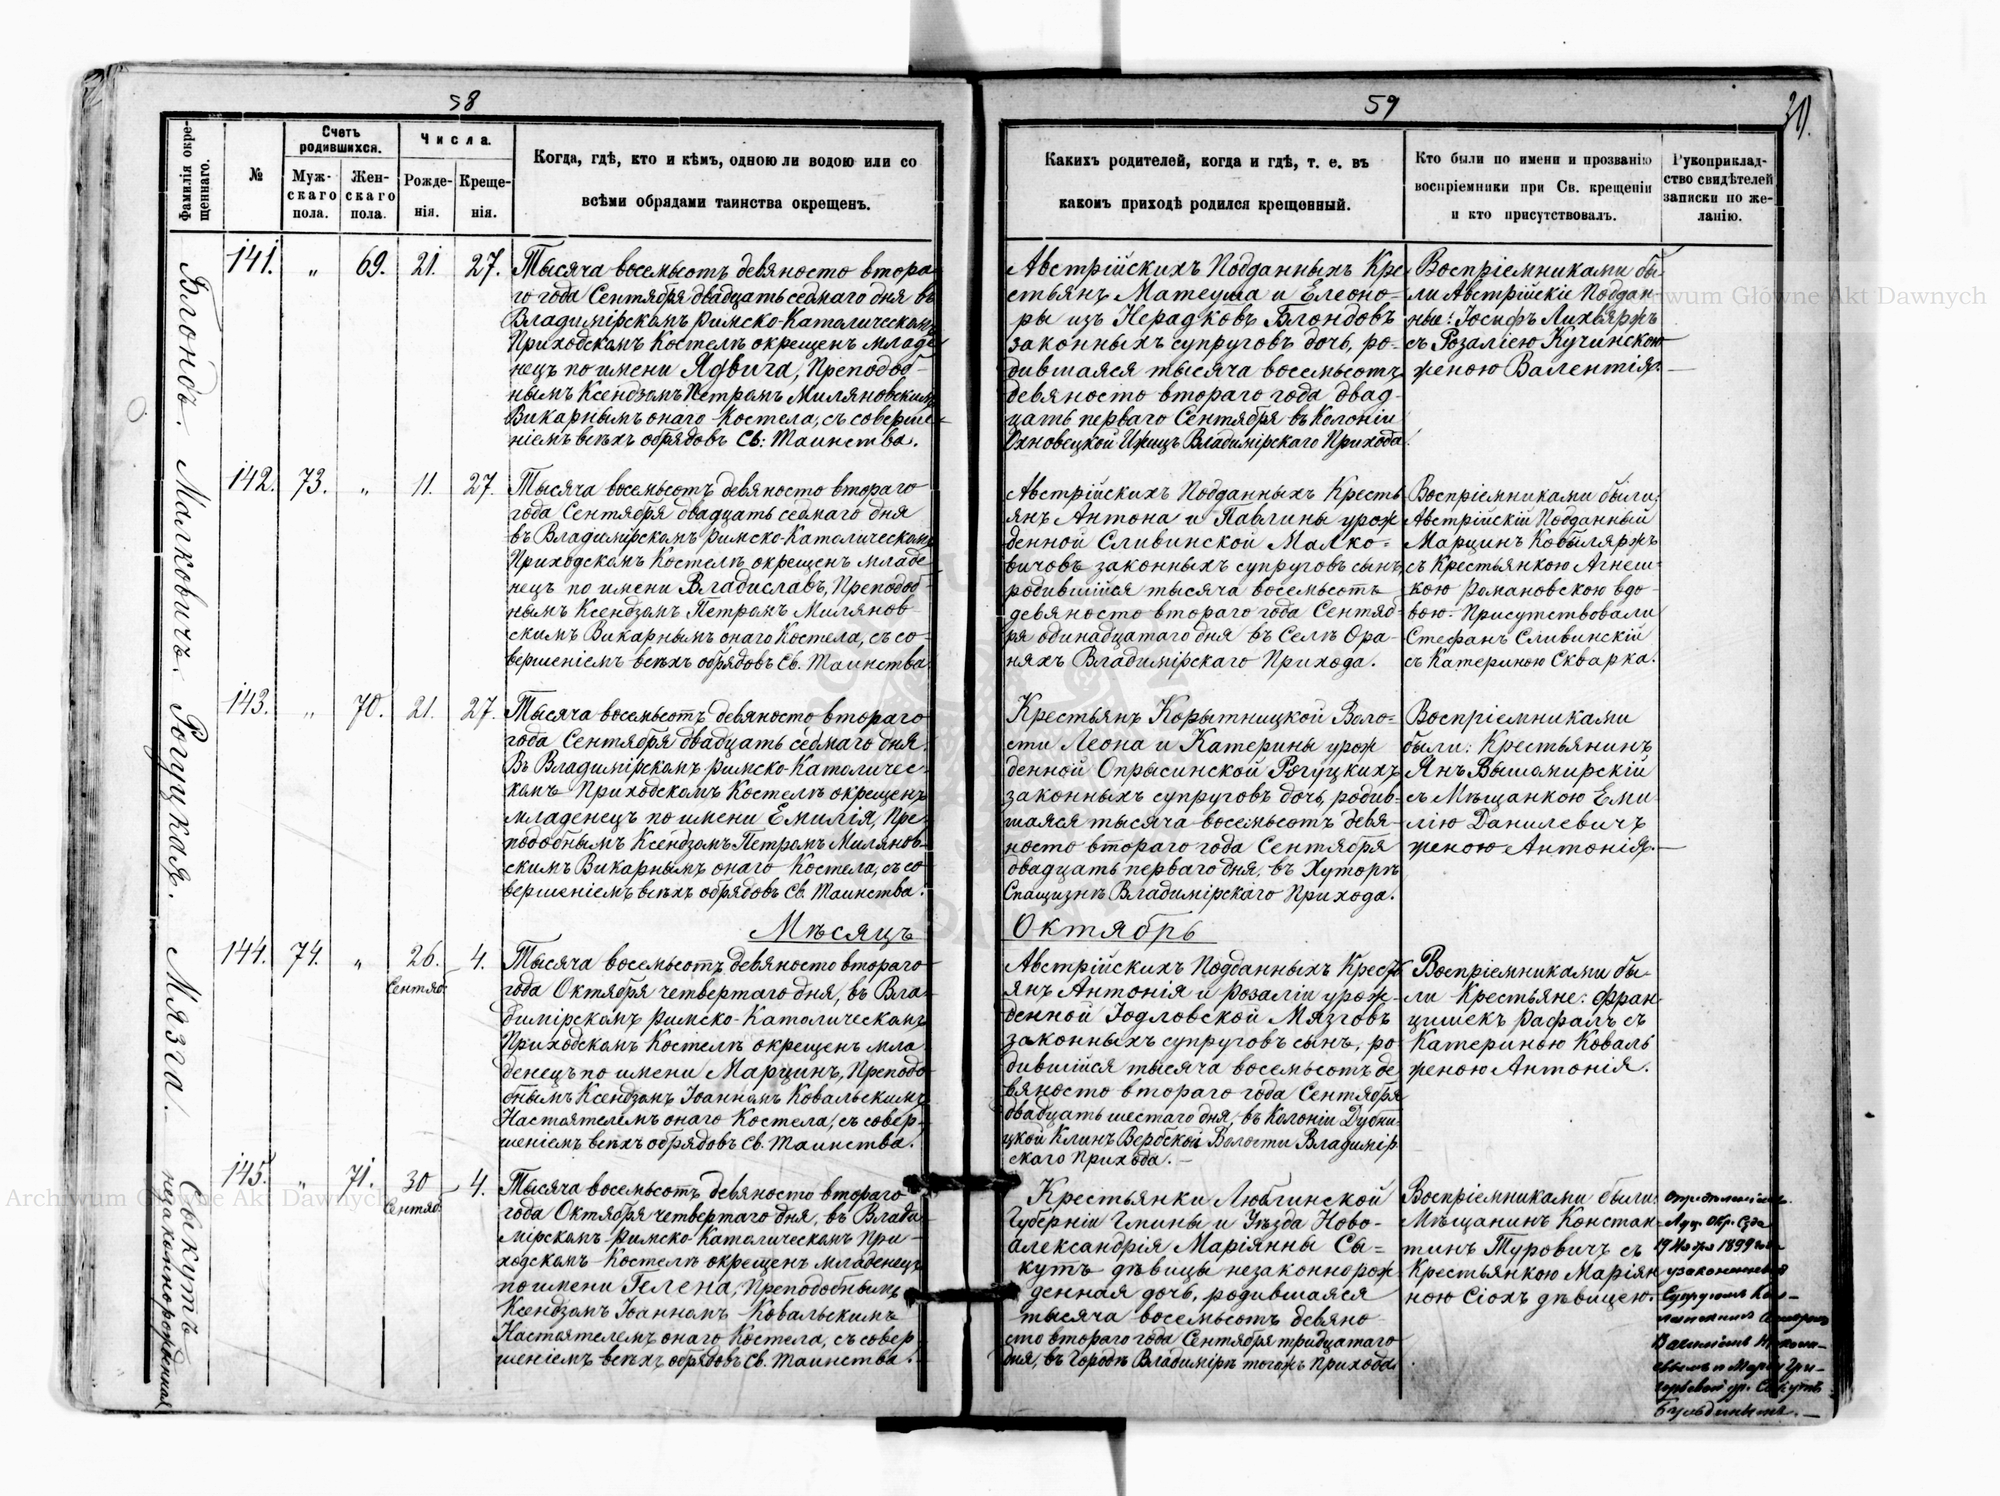 58
Фамилія окре-
щеннаго.
№
Счетъ
родившихся.
Муж-
скаго
пола.
Жен-
скаго
пола.
Числа.
Рожде-
нія.
Креще-
нія.
Когда, гдѣ, кто и кѣмъ, одною ли водою или со
всѣми обрядами таинства окрещенъ.
Блондъ.
141. „ 69. 21. 27.
Тысяча восемьсотъ девяносто втора-
го года Сентября двадцать седмаго дня въ
Владимірскомъ Римско-Католическомъ
Приходскомъ Костелѣ окрещенъ младе-
нецъ по имени Ядвига, Преподоб-
нымъ Ксендзомъ Петромъ Миляновскимъ
Викарнымъ онаго Костела, съ соверше-
ніемъ всѣхъ обрядовъ Св: Таинства.
Малковичъ.
142. 73. „ 11. 27.
Тысяча восемьсотъ девяносто втораго
года Сентября двадцать седмаго дня
въ Владимірскомъ Римско-Католическомъ
Приходскомъ Костелѣ окрещенъ младе-
нецъ по имени Владиславъ, Преподоб-
нымъ Ксендзомъ Петромъ Милянов-
скимъ Викарнымъ онаго Костела, съ со-
вершеніемъ всѣхъ обрядовъ Св. Таинства.
Рогуцкая.
143. „ 70. 21. 27.
Тысяча восемьсотъ девяносто втораго
года Сентября двадцать седмаго дня
Въ Владимірскомъ Римско-Католичес-
комъ Приходскомъ Костелѣ окрещенъ
младенецъ по имени Емилія, Пре-
подобнымъ Ксендзомъ Петромъ Милянов-
скимъ Викарнымъ онаго Костела, съ со-
вершеніемъ всѣхъ обрядовъ Св. Таинства.
Мѣсяцъ
Мязга.
144. 74. „ 26. 4.
Сентяб.
Тысяча восемьсотъ девяносто втораго
года Октября четвертаго дня, въ Вла-
димірскомъ Римско-Католическомъ
Приходскомъ Костелѣ окрещенъ мла-
денецъ по имени Марцинъ, Преподо-
бнымъ Ксендзомъ Іоанномъ Ковальскимъ
Настоятелемъ онаго Костела, съ совер-
шеніемъ всѣхъ обрядовъ Св. Таинства.
Сыкутъ
незаконнорожденная
145. „ 71. 30 4.
Сентяб.
Тысяча восемьсотъ девяносто втораго
года Октября четвертаго дня, въ Влади-
мірскомъ Римско-Католическомъ При-
ходскомъ Костелѣ окрещенъ младенецъ
по имени Гелена, Преподобнымъ
Ксендзомъ Іоанномъ Ковальскимъ
Настоятелемъ онаго Костела, съ совер-
шеніемъ всѣхъ обрядовъ Св. Таинства.
59
30.
Какихъ родителей, когда и гдѣ, т. е. въ
какомъ приходѣ родился крещенный.
Кто были по имени и прозванію
воспріемники при Св. крещеніи
и кто присутствовалъ.
Рукоприклад-
ство свидѣтелей
записки по же-
ланію.
Австрійскихъ Подданныхъ Кре-
стьянъ Матеуша и Елеоно-
ры изъ Нерадковъ Блондовъ
законныхъ супруговъ дочь, ро-
дившаяся тысяча восемьсотъ
девяносто втораго года двад-
цать перваго Сентября въ Колоніи
Владимірскаго Прихода.
Воспріемниками бы-
ли Австрійскіе Поддан-
ные: Іосифъ Лихвяржъ
съ Розаліею Кучинскою
женою Валентія.
Австрійскихъ Подданныхъ Кресть-
янъ Антона и Павлины урож-
денной Сливинской Малко-
вичовъ законныхъ супруговъ сынъ,
родившійся тысяча восемьсотъ
девяносто втораго года Сентяб-
ря одинадцатаго дня въ Селѣ Ора-
няхъ Владимірскаго Прихода.
Воспріемниками были:
Австрійскій Подданный
Марцинъ Кобыляржъ
съ Крестьянкою Агнеш-
кою Романовскою вдо-
вою. Присутствовали
Стефанъ Сливинскій
съ Катериною Скварка.
Крестьянъ Корытницкой Воло-
сти Леона и Катерины урож-
денной Опрысинской Рогуцкихъ
законныхъ супруговъ дочь, родив-
шаяся тысяча восемьсотъ девя-
носто втораго года Сентября
двадцать перваго дня, въ Хуторѣ
Спащизнѣ Владимірскаго Прихода.
Воспріемниками
были: Крестьянинъ
Янъ Вышомирскій
съ Мѣщанкою Еми-
лію Данилевичъ
женою Антонія.
Октябрь
Австрійскихъ Подданныхъ Кресть-
янъ Антонія и Розаліи урож-
денной Іодловской Мязговъ
законныхъ супруговъ сынъ, ро-
дившійся тысяча восемьсотъ де-
вяносто втораго года Сентября
двадцать шестаго дня, въ Колоніи Дубни-
цкой Клинъ Вербской Волости Владимір-
скаго Прихода.
Воспріемниками бы-
ли Крестьяне: Фран-
цишекъ Рафалъ съ
Катериною Коваль
женою Антонія.
Крестьянки Люблинской
Губерніи Гмины и Уѣзда Ново-
александрія Маріянны Сы-
кутъ дѣвицы незаконнорож-
денная дочь, родившаяся
тысяча восемьсотъ девяно-
сто втораго года Сентября тридцатаго
дня, въ Городѣ Владимірѣ тогожъ Прихода
Воспріемниками были:
Мѣщанинъ Констан-
тинъ Туровичъ съ
Крестьянкою Маріян-
ною Сіохъ дѣвицею.
Луц. Окр. Суда
1899 года
узаконенная
Супругомъ
Archiwum Główne Akt Dawnych
Archiwum Główne Akt Dawnych